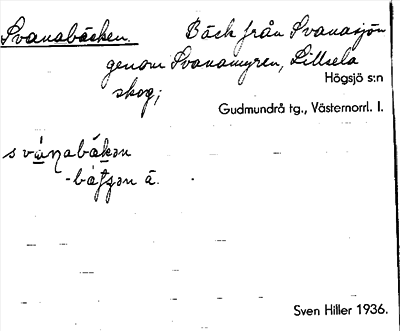 Svanabäcken. Bäck från Svanasjön
genom Svanamyren, Lillsela
skog;
Högsjö s:n
Gudmundrå tg., Västernorrl. l.
Sven Hiller 1936.